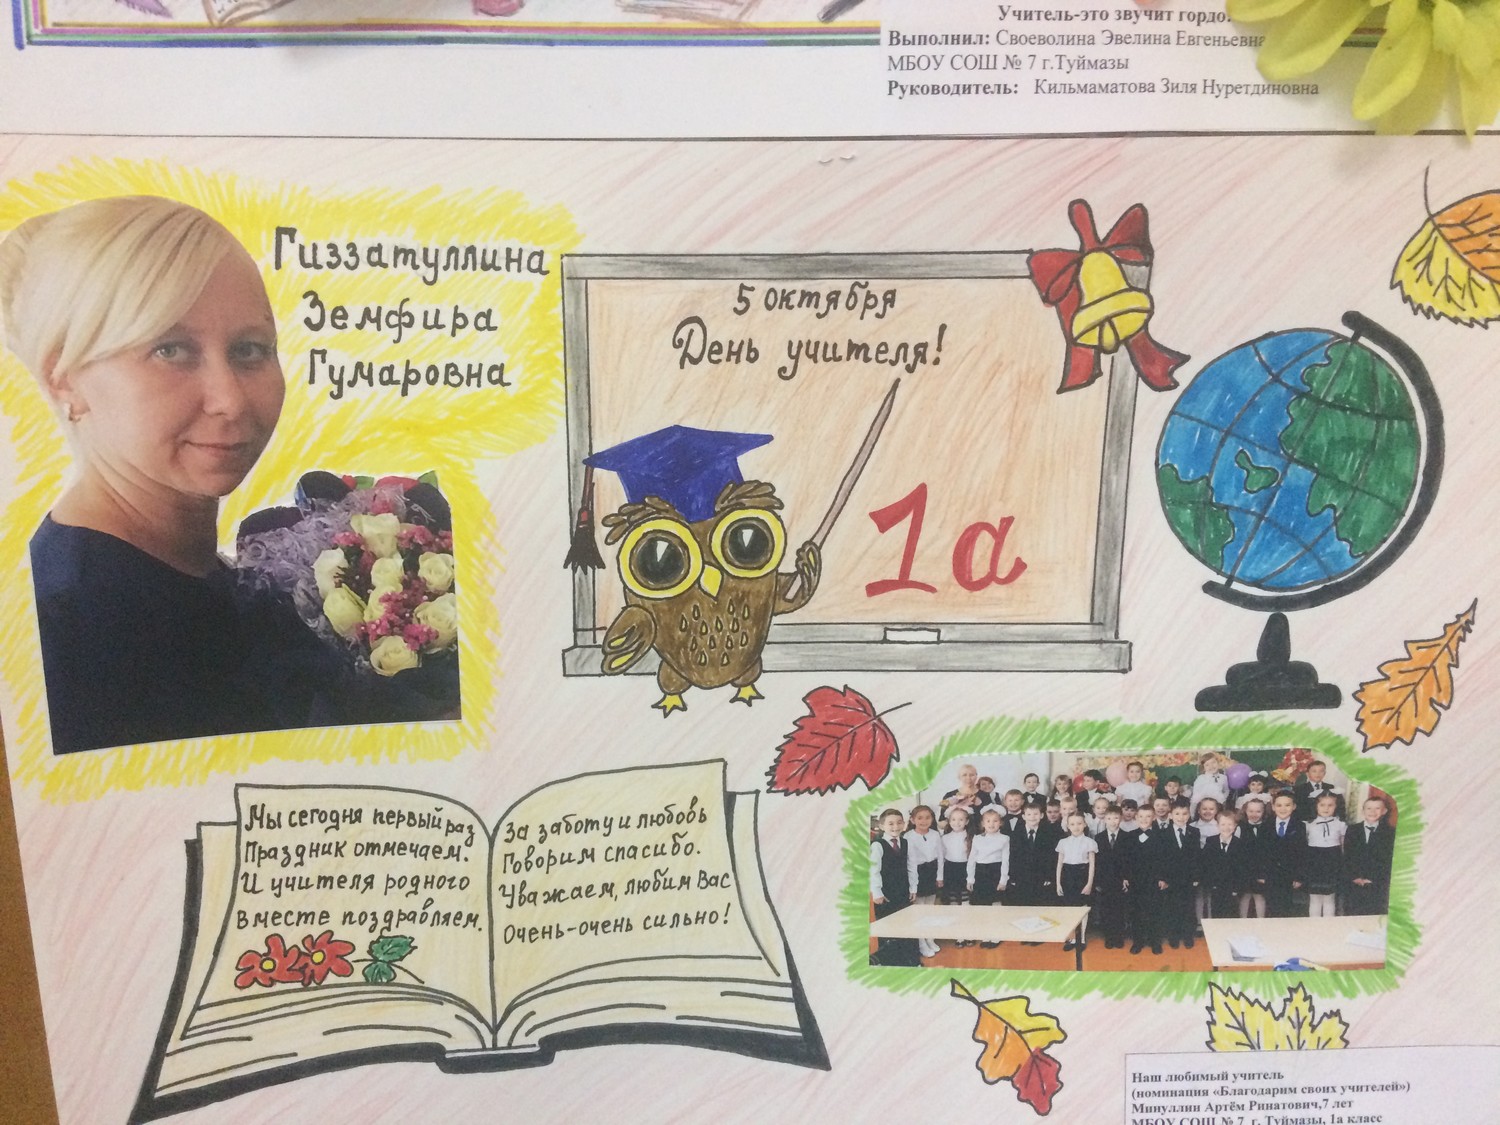 Учитель-это звучит гордо!
Выполнил: Своеволина Эвелина Евгеньевна
МБОУ СОШ № 7 г.Туймазы
Руководитель: Кильмаматова Зиля Нуретдиновна
Гиззатуллина
Земфира
Гумаровна
5 октября
День учителя!
1а
Мы сегодня первый раз
Праздник отмечаем.
И учителя родного
Вместе поздравляем.
За заботу и любовь
Говорим спасибо.
Уважаем, любим Вас
Очень-очень сильно!
Наш любимый учитель
(номинация «Благодарим своих учителей»)
Минуллин Артём Ринатович,7 лет
МБОУ СОШ № 7 г. Туймазы, 1а класс